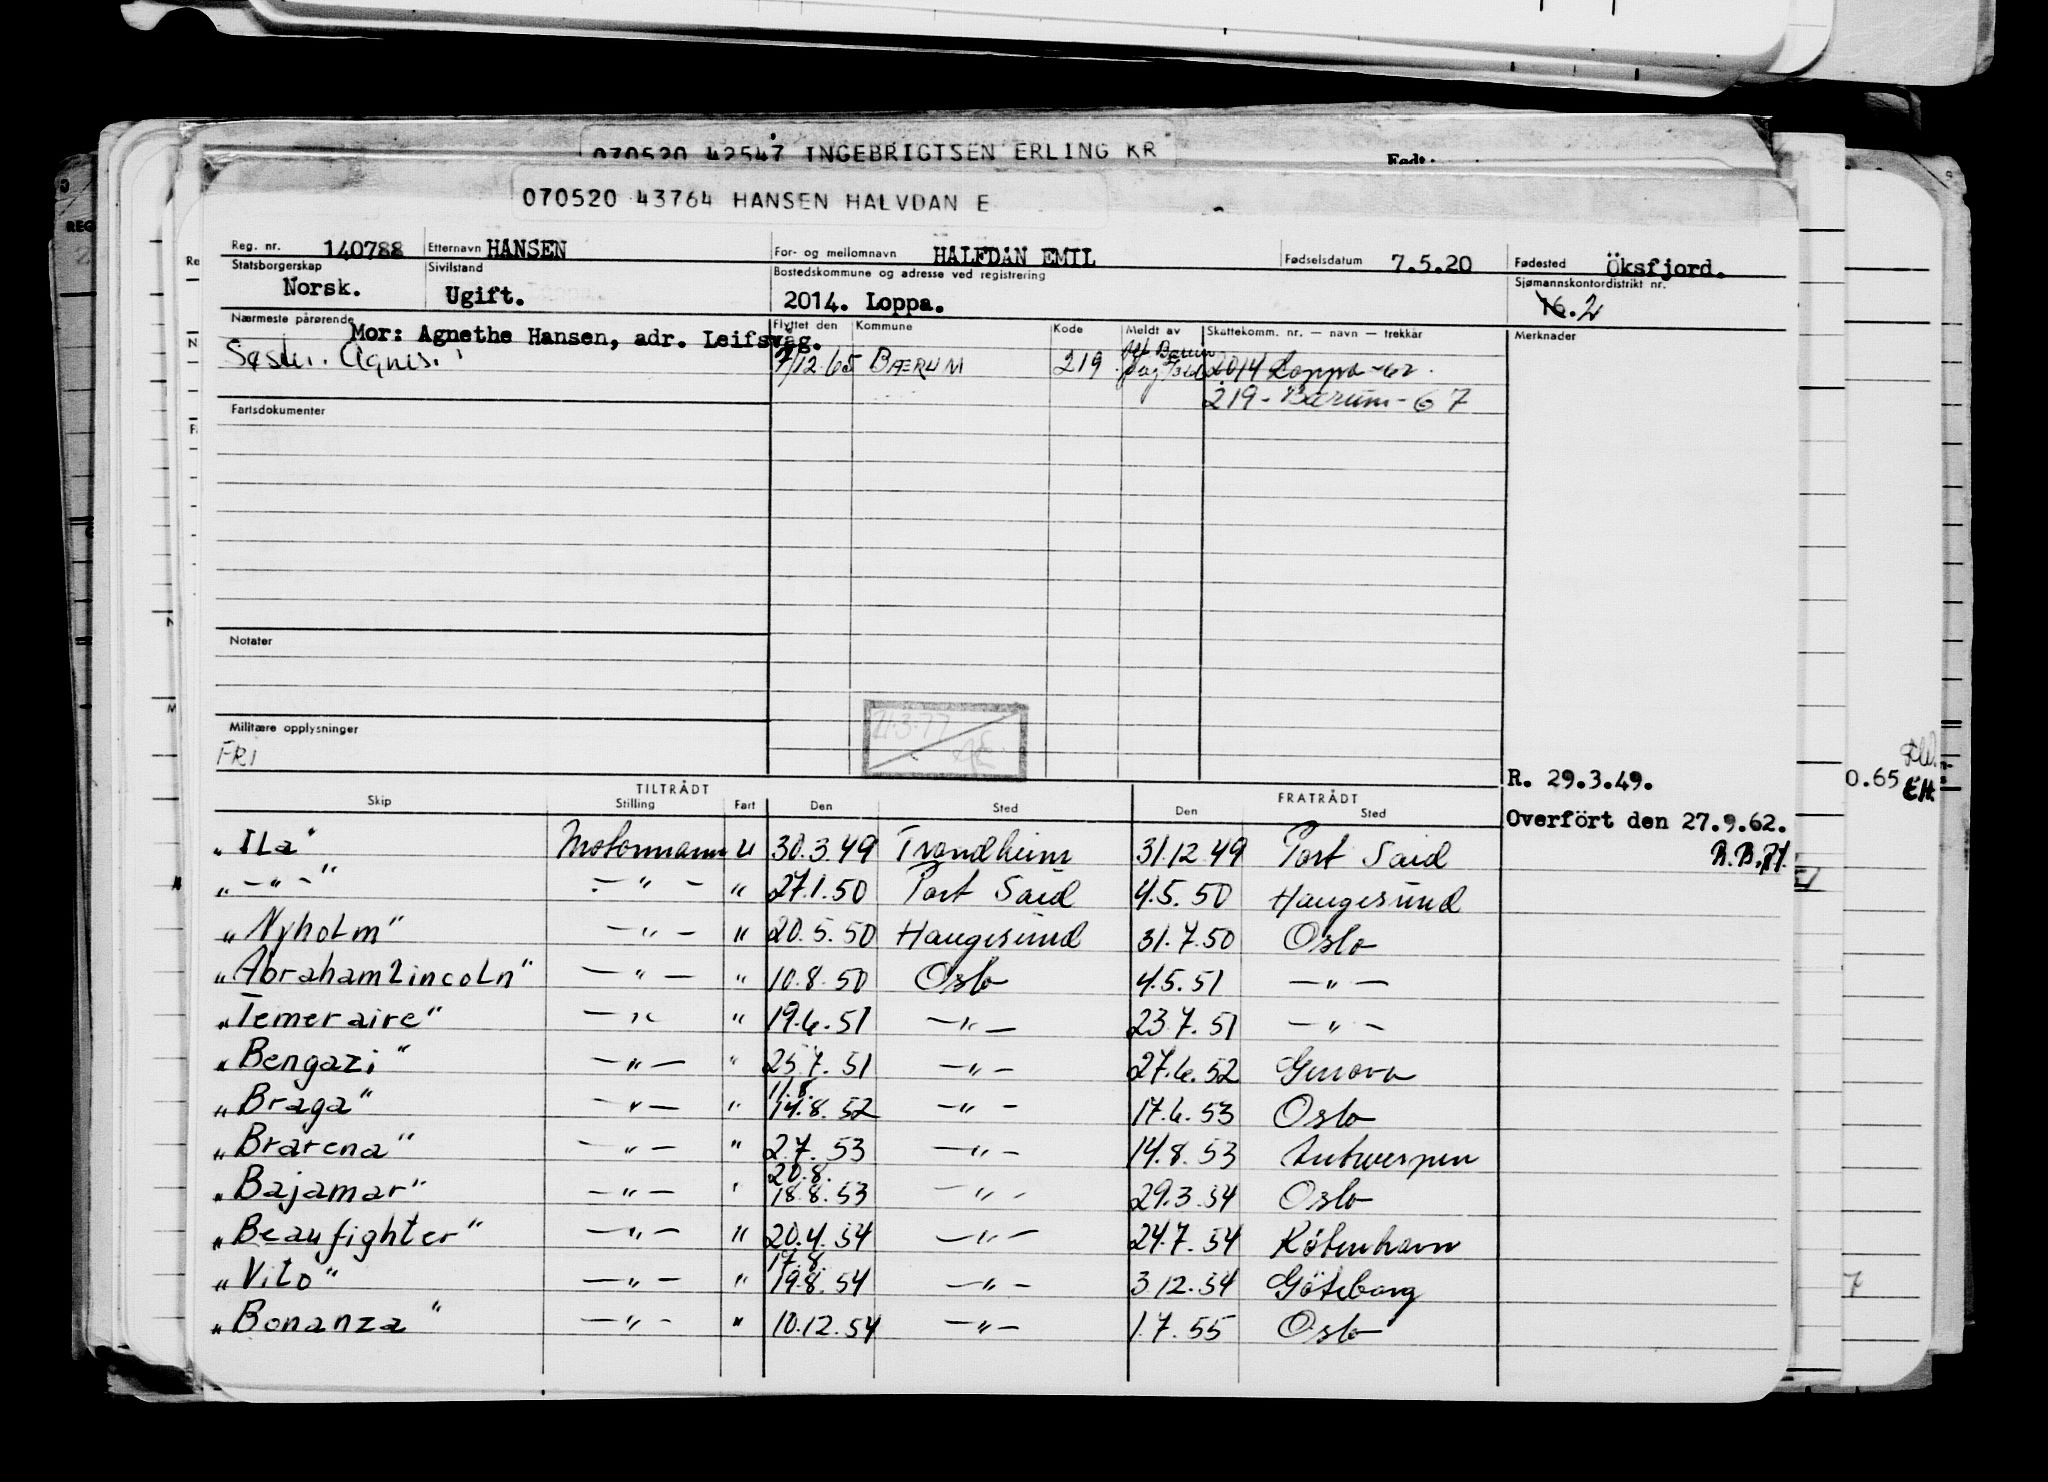 070520 42547 INGEBRIGTSEN ERLING KR
Født:
070520 43764 HANSEN HALVDAN E
Reg. nr. 140788 Etternavn HANSEN For- og mellomnavn HALFDAN EMIL Fødselsdatum 7.5.20 Fødested Öksfjord.
Statsborgerskap Norsk. Sivilstand Ugift. Bostedskommune og adresse ved registrering 2014. Loppa. Sjømannskontordistrikt nr. 16. 2
Nærmeste pårørende Mor: Agnethe Hansen, adr. Leifsvåg. Flyttet den Kommune Kode Meldt av Skattekomm. nr. — navn — trekkår Merknader
Søster. Agnes. 7/12.65 BÆRUM 219 2014 Loppa-62.
219-Bærum-67
Fartsdokumenter
Notater
21.3.77
Militære opplysninger
FRI
R. 29.3.49.
0.65 EH.
TILTRÅDT FRATRÅDT
Skip Stilling Fart Den Sted Den Sted
Overfört den 27.9.62.
R.B.
"Ila" Motormann U 30.3.49 Trondheim 31.12.49 Port Said
" — " — " — " — " 27.1.50 Port Said 4.5.50 Haugesund
"Nyholm" — " — " 20.5.50 Haugesund 31.7.50 Oslo
"Abraham Lincoln" — " — " 10.8.50 Oslo 4.5.51 — " —
"Temeraire" — " " 19.6.51 — " — 23.7.51 — " —
"Bengazi" — " — " 25.7.51 — " — 27.6.52 Genova
11.8.
"Braga" — " — " 14.8.52 — " — 17.6.53 Oslo
"Brarena" — " — " 2.7.53 — " — 14.8.53 Antwerpen
20.8.
"Bajamar" — " — " 18.8.53 — " — 29.3.54 Oslo
"Beaufighter" — " — " 20.4.54 — " — 24.7.54 København
17.8.
"Vito" — " — " 19.8.54 — " — 3.12.54 Göteborg
"Bonanza" — " — " 10.12.54 — " — 1.7.55 Oslo